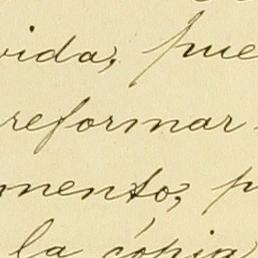 vida, pue
reformar
mento, p
la cópia